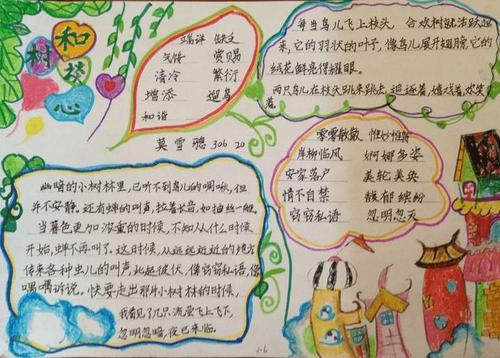 树和喜心
端详 缺乏
气馁 赏赐
清冷 繁衍
增添 遛鸟
和谐
莫雪骢 306 20
每当鸟儿飞上枝头,合欢树就活跃起
来,它的羽状的叶子,像鸟儿展开翅膀,它的
绒花鲜亮得耀眼。
两只鸟儿在枝头跳来跳去,追逐着,嬉戏着,欢笑
着。
零零散散 惟妙惟肖
岸柳临风 婀娜多姿
安家落户 美轮美奂
情不自禁 馥郁缤纷
窃窃私语 忽明忽灭
幽暗的小树林里,已听不到鸟儿的啁啾,但
并不安静。还有蝉的叫声,拉着长音,如抽丝一般。
当暮色更加浓重的时候,不知从什么时候
开始,蝉不再叫了。这时候,从远远近近的地方
传来各种虫儿的叫声,此起彼伏,像窃窃私语,像
喁喁诉说。快要走出那片小树林的时候,
我看见了几只流萤飞上飞下,
忽明忽暗,夜已来临。